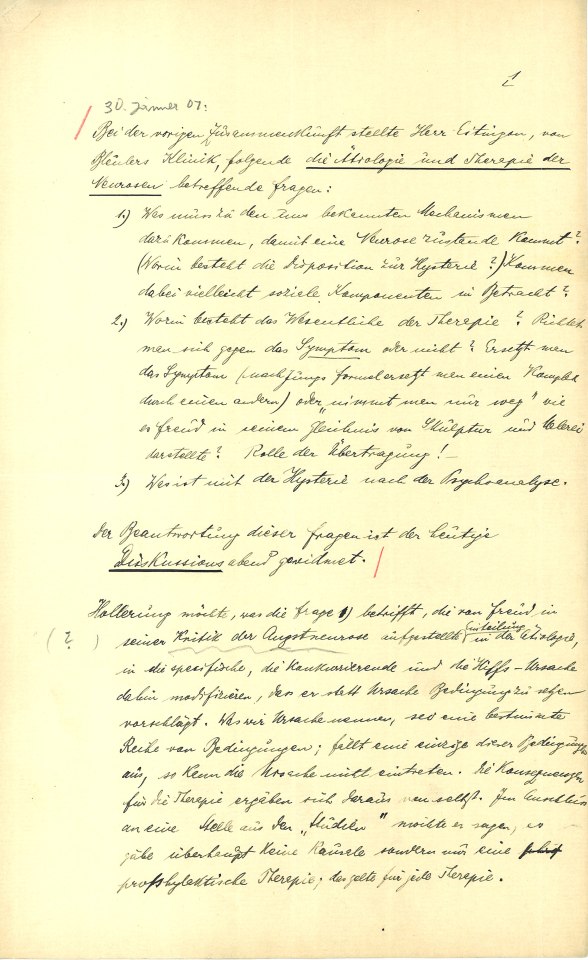 1
30. Jänner 07:
Bei der vorigen Zusammenkunft stellte Herr Eitingon, von
Bleulers Klinik, folgende die Ätiologie und Therapie der
Neurosen betreffende Fragen:
1.) Was muss zu den uns bekannten Mechanismen
dazu kommen, damit eine Neurose zustande kommt?
(Worin besteht die Disposition zur Hysterie?) Kommen
dabei vielleicht soziale Komponenten in Betracht?
2.) Worin besteht das Wesentliche der Therapie? Richtet
man sich gegen das Symptom oder nicht? Ersetzt man
das Symptom (nach Jungs Formel ersetzt man einen Komplex
durch einen andern) oder „nimmt man nur weg" wie
es Freud in seinem Gleichnis von Skulptur und Malerei
darstellte? Rolle der Übertragung! –
3.) Was ist mit der Hysterie nach der Psychoanalyse.
Der Beantwortung dieser Fragen ist der heutige
Diskussionsabend gewidmet.
Hollerung möchte, was die Frage 1) betrifft, die von Freud in
(?) seiner Kritik der Angstneurose aufgestellte Einteilung in der Ätiologie,
in die spezifische, die konkurrierende und die Hilfs-Ursache
dahin modifizieren, dass er statt Ursache Bedingung zu setzen
vorschlägt. Was wir Ursache nennen, sei eine bestimmte
Reihe von Bedingungen; fällt eine einzige dieser Bedingungen
aus, so kann die Ursache nicht eintreten. Die Konsequenzen
für die Therapie ergäben sich daraus von selbst. Im Anschluss
an eine Stelle aus den „Studien" möchte er sagen, es
gäbe überhaupt keine kausale sondern nur eine
prophylaktische Therapie; das gelte für jede Therapie.